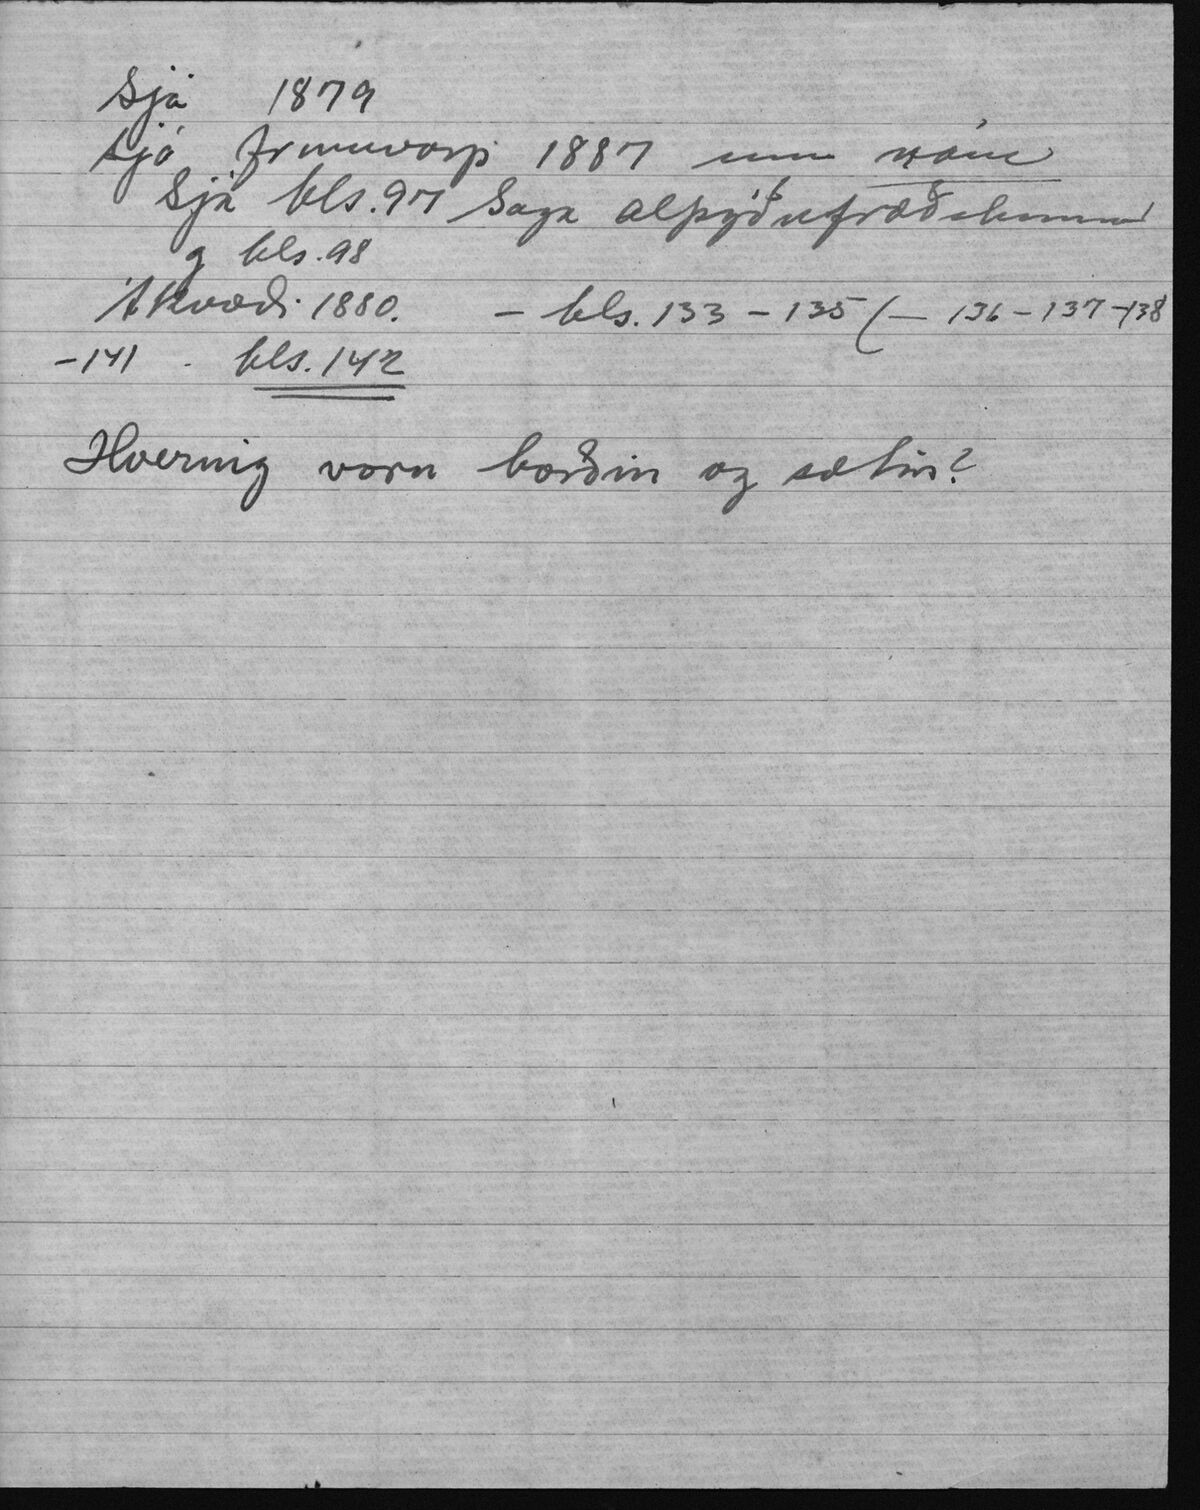 Sjá 1879
Sjá frumvarp 1887 um nám
Sjá bls. 97 Saga alþýðufræðslunnar
og bls. 98
Ákvæði 1880. - bls. 133 - 135 (- 136 - 137 - 138
- 141 . bls. 142
Hvernig voru borðin og sætin?